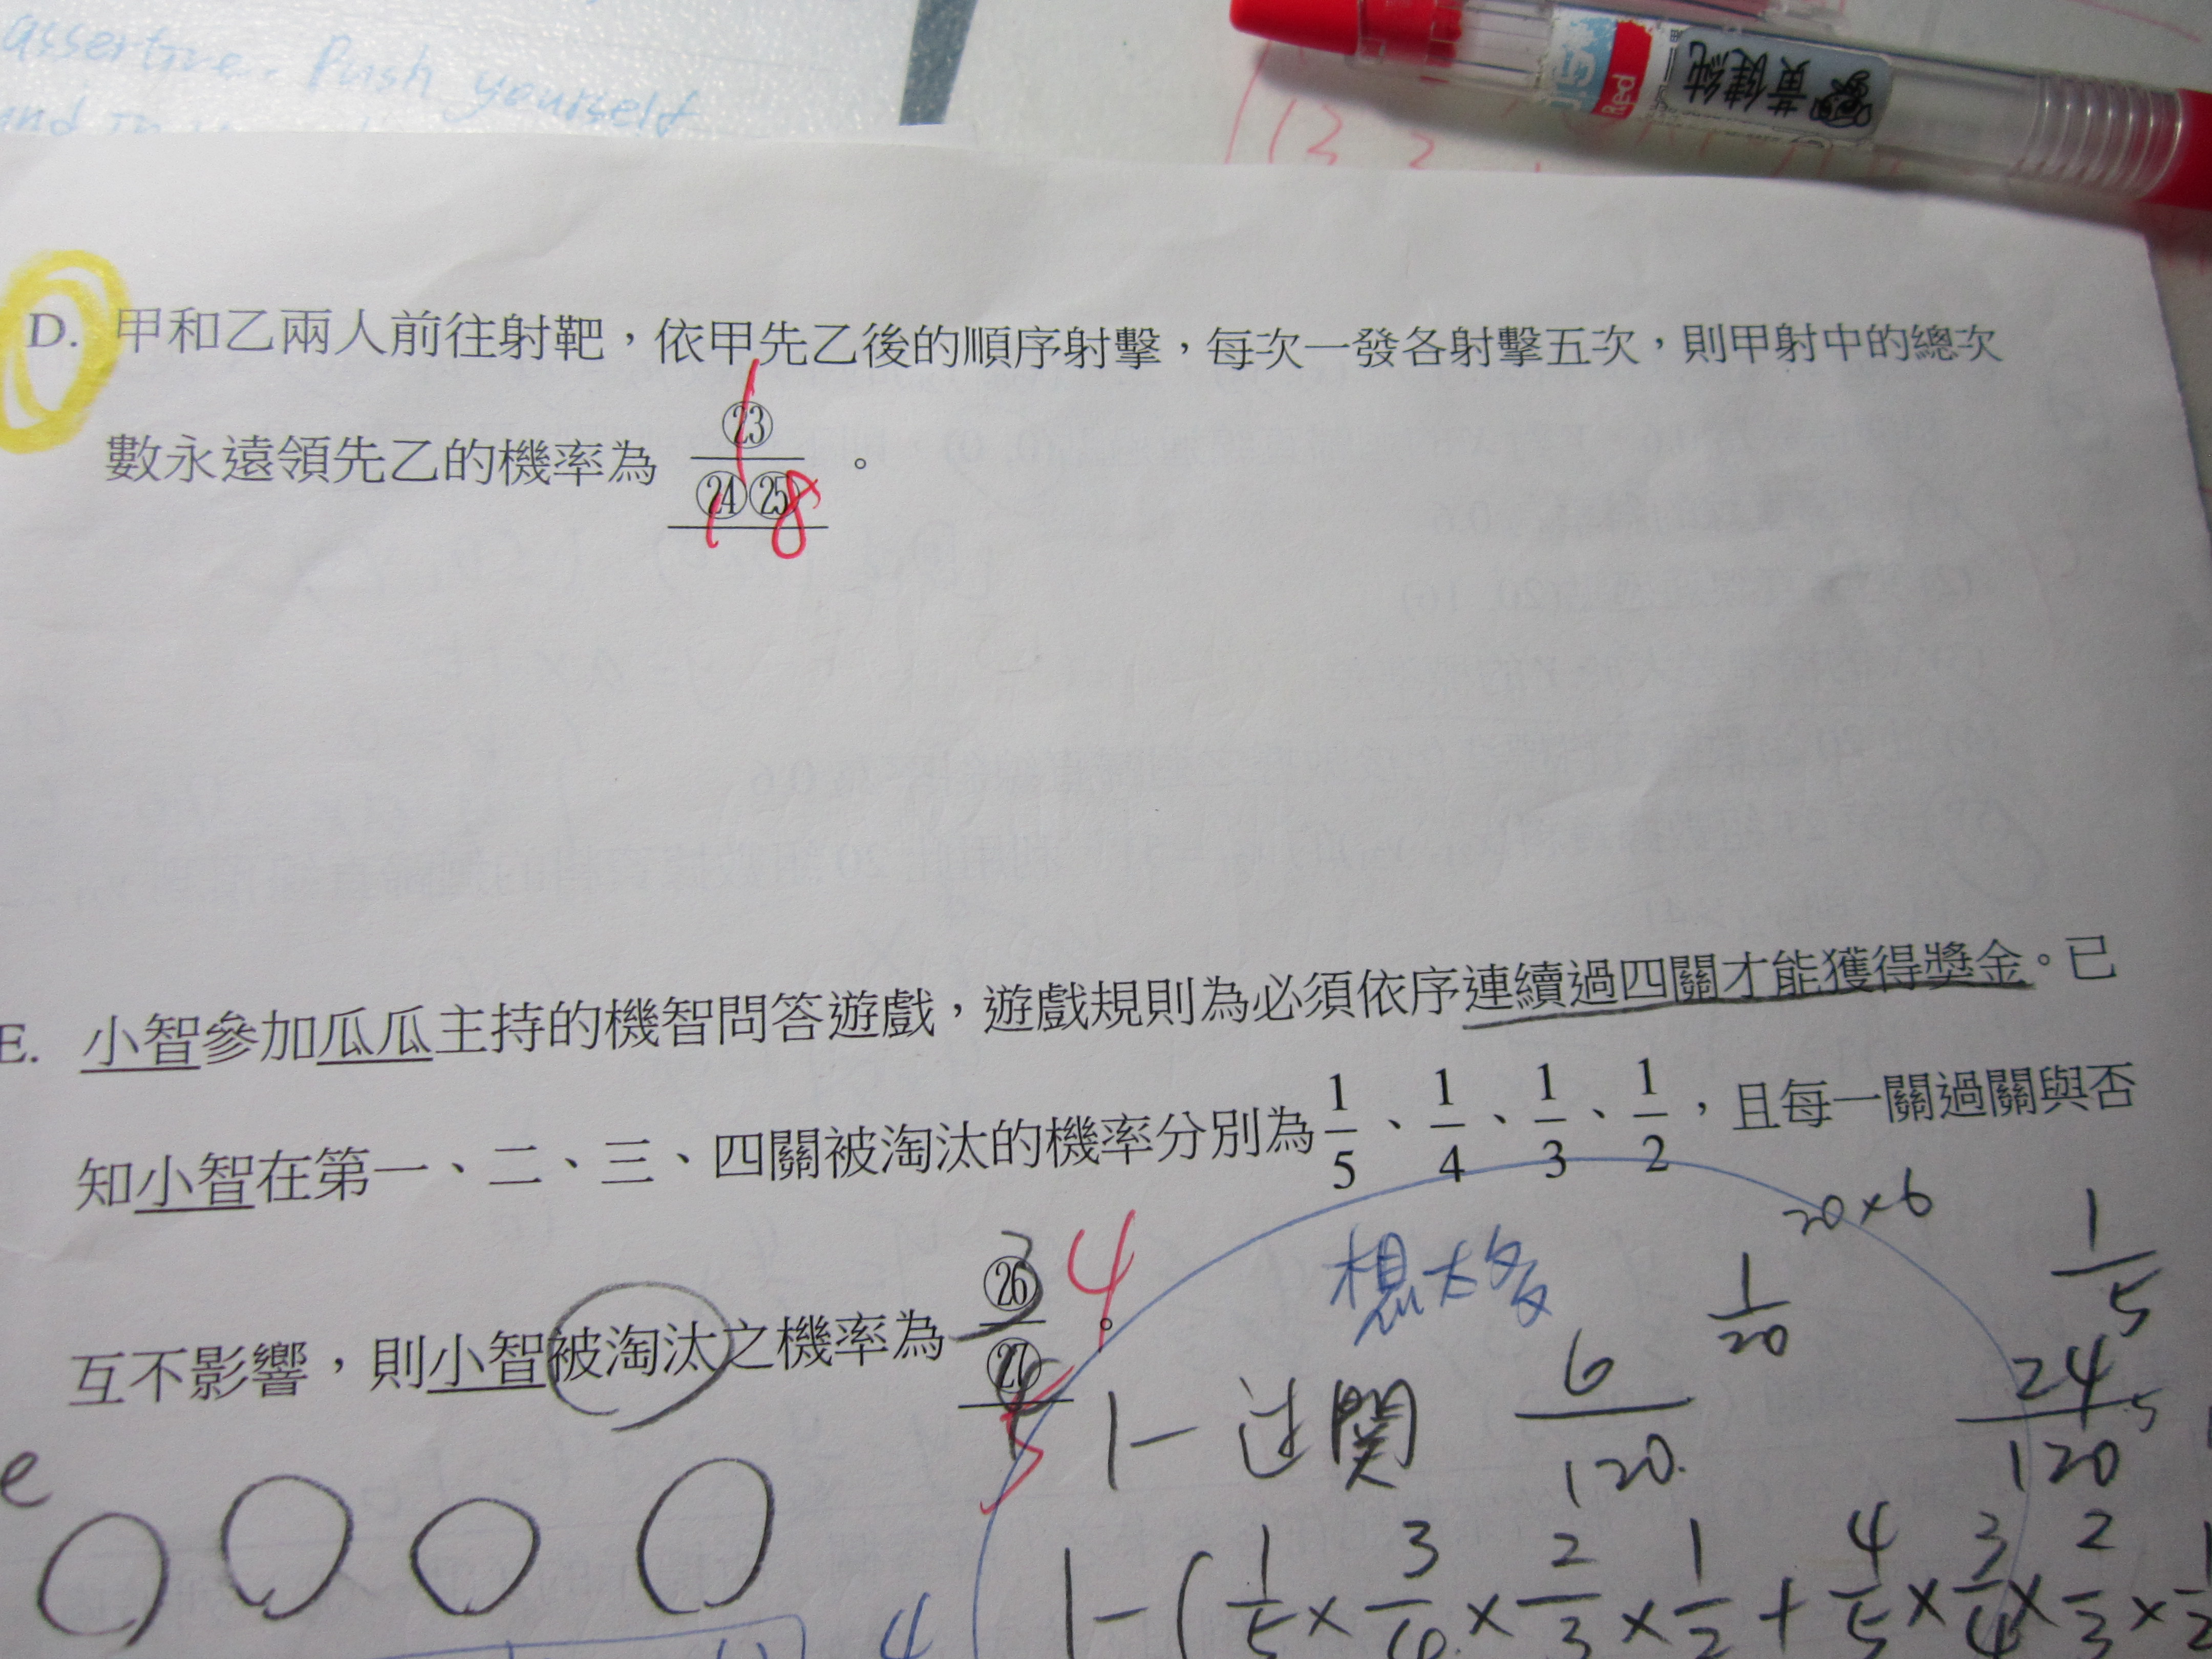 assertive. Push yourself
Red
黃健純
D. 甲和乙兩人前往射靶，依甲先乙後的順序射擊，每次一發各射擊五次，則甲射中的總次
數永遠領先乙的機率為 ㉓/㉔㉕ 。
1
18
E. 小智參加瓜瓜主持的機智問答遊戲，遊戲規則為必須依序連續過四關才能獲得獎金。已
知小智在第一、二、三、四關被淘汰的機率分別為 1/5、1/4、1/3、1/2，且每一關過關與否
20×6
互不影響，則小智被淘汰之機率為 ㉖/㉗ 。
4
5
想太多
1/20
1/5
1- 过関
6/120
24/120
5
e
1-(1/5×3/4×2/3×1/2+4/5×3/4×2/3×1/2
4